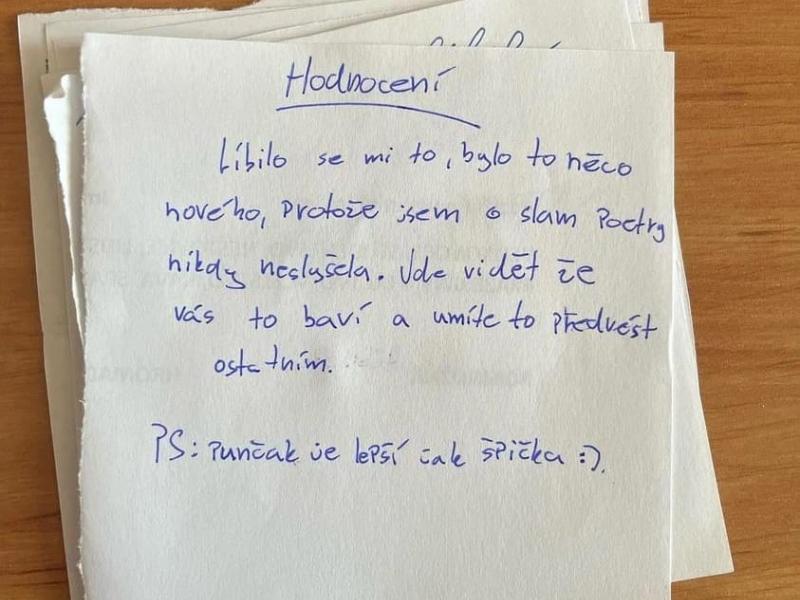 Hodnocení
Líbilo se mi to, bylo to něco
nového, protože jsem o slam Poetry
nikdy neslyšela. Jde vidět že
vás to baví a umíte to předvést
ostatním.
PS: Punčák je lepší jak špička :).